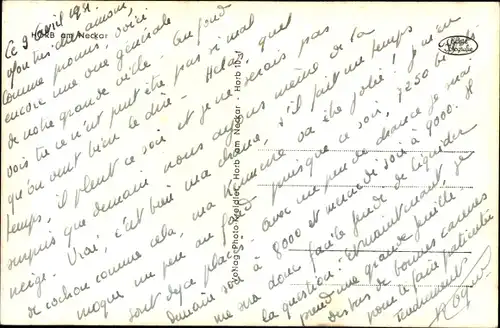 HORB am Neckar
Ce 9 avril 1951.
mon amour,
Comme promis, voici
encore une vue générale
de notre grande ville. Au fond
vois tu ce n'est peut être pas si mal
qu'on veut bien le dire. Hélas quel
temps, il pleut ce soir et je ne serais pas
surpris que demain nous ayons même de la
neige. Vrai, c'est bien ma chance, s'il fait un temps
de cochon comme cela, ma va être jolie! J'm'en
moque un peu au fond puisque ce soir, 7250 
sont déjà placés. avec un peu de chance je
demain soir à 8000 et mercredi soir à 9000. Il
me sera donc facile jeudi de liquider
la question. et maintenant, je
prend une grande feuille
de bonnes caresses
pour te faire patienter
Tendrement
Roger
Foto Kreidler Horb am Neckar - Horb